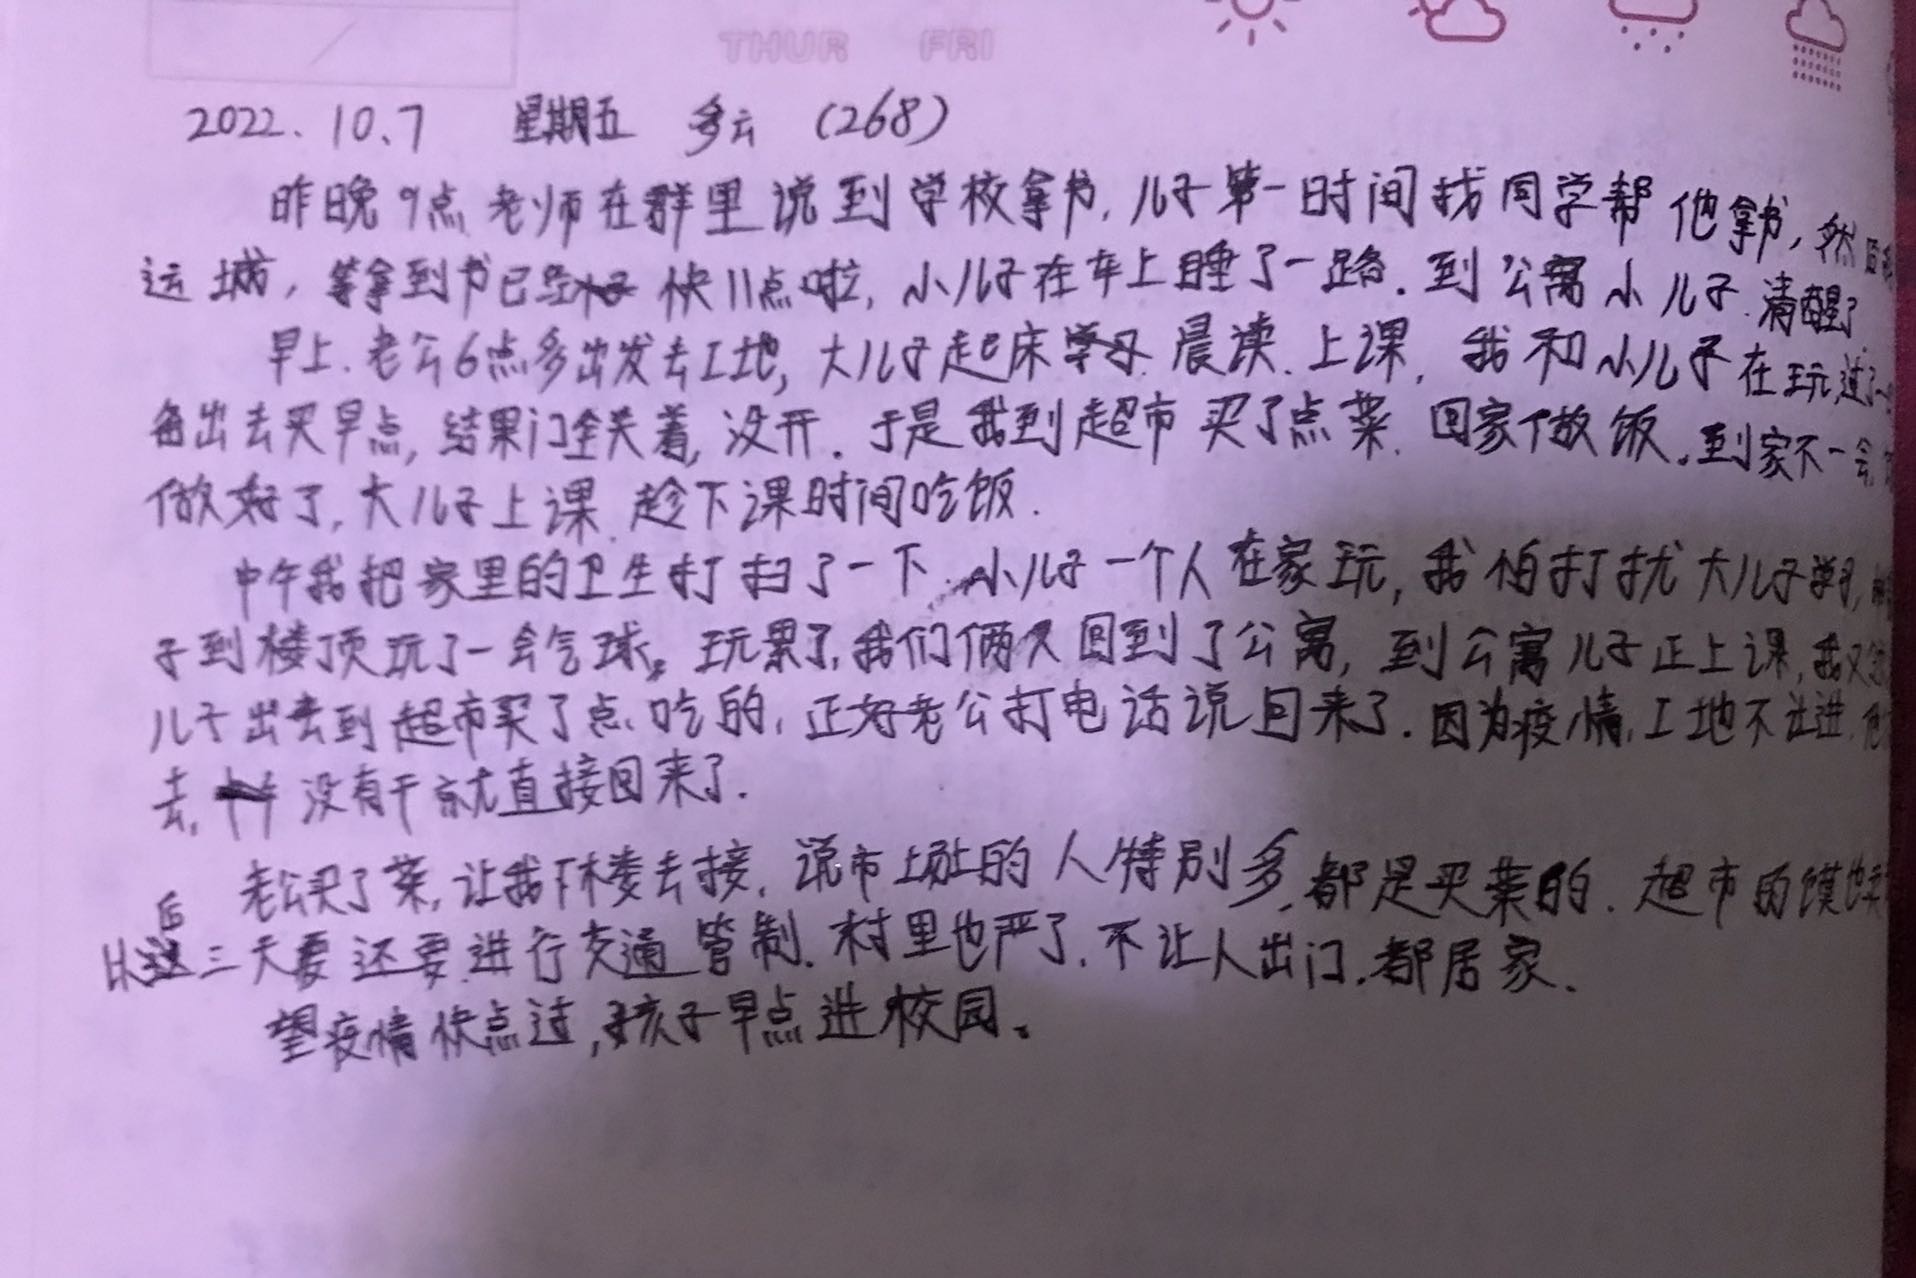 THUR FRI
2022.10.7 星期五 多云 (268)
昨晚9点老师在群里说到学校拿书,儿子第一时间找同学帮他拿书,然后
运城,等拿到书已经快11点啦,小儿子在车上睡了一路.到公寓小儿子.清醒了
早上.老公6点多出发去工地,大儿子起床晨读.上课,我和小儿子在玩,过了一
备出去买早点,结果门全关着,没开.于是我到超市买了点菜.回家做饭.到家不一会
做好了,大儿子上课.趁下课时间吃饭.
中午我把家里的卫生打扫了一下.小儿子一个人在家玩,我怕打扰大儿子学习,
子到楼顶玩了一会气球。玩累了,我们俩又回到了公寓,到公寓儿子正上课,我又
儿子出去到超市买了点吃的,正好老公打电话说回来了.因为疫情,工地不让进.
去,没有干就直接回来了.
老公买了菜,让我下楼去接,说市场上的人特别多,都是买菜的.超市的馍也卖
以后三天要还要进行交通管制.村里也严了.不让人出门.都居家.
望疫情快点过,孩子早点进校园。